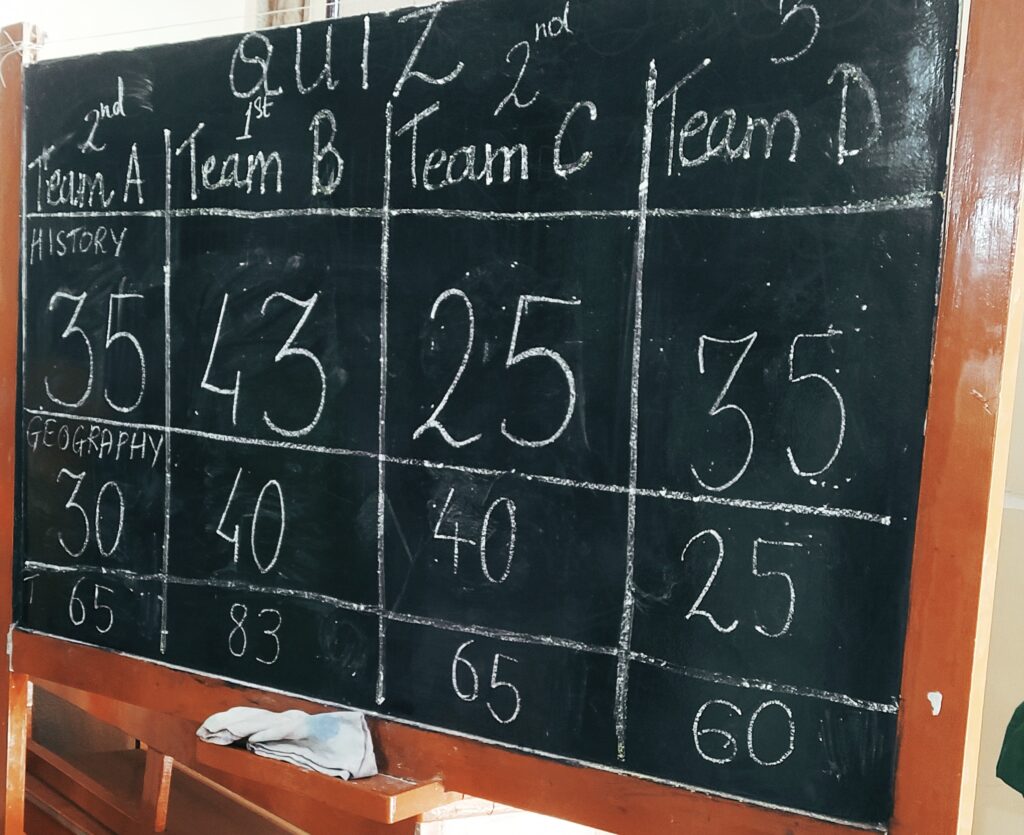 QUIZ
2nd 1st 2nd 3
Team A Team B Team C Team D
HISTORY
35 43 25 35
GEOGRAPHY
30 40 40 25
T 65 83 65 60